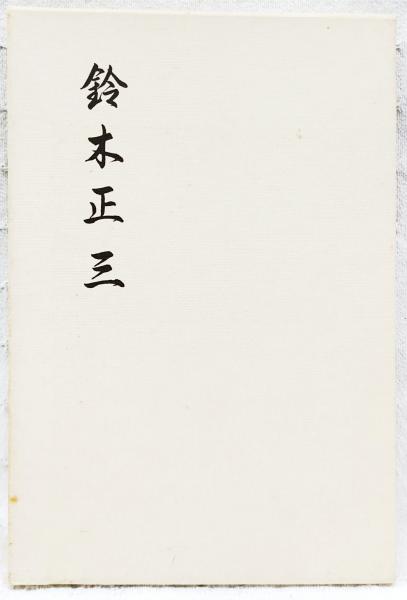 鈴木正三